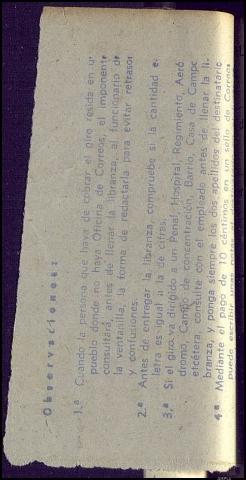 Observaciones:
1.ª Cuando la persona que haya de cobrar el giro resida en u
pueblo donde no haya Oficina de Correos, el imponente
consultará, antes de llenar la libranza, al funcionario de
la ventanilla, la forma de redactarla para evitar retrasos
y confusiones.
2.ª Antes de entregar la libranza, compruebe si la cantidad e
letra es igual a la de cifras.
3.ª Si el giro va dirigido a un Penal, Hospital, Regimiento, Aeró
dromo, Campo de concentración, Barrio, Casa de Campo
etcétera, consulte con el empleado antes de llenar la li
branza, y ponga siempre los dos apellidos del destinatario
4.ª Mediante el pago de 10 céntimos en un sello de Correos
puede escribir una